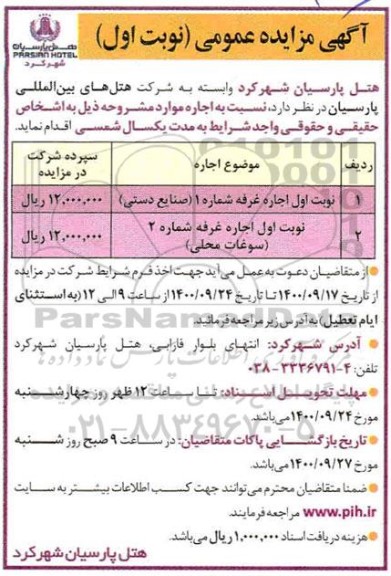 آگهی مزایده عمومی (نوبت اول)
هتل پارسیان
PARSIAN HOTEL
شهرکرد
هتل پارسیان شهرکرد وابسته به شرکت هتل‌های بین‌المللی
پارسیان در نظر دارد، نسبت به اجاره موارد مشروحه ذیل به اشخاص
حقیقی و حقوقی واجد شرایط به مدت یکسال شمسی اقدام نماید.
ردیف موضوع اجاره سپرده شرکت در مزایده
۱ نوبت اول اجاره غرفه شماره ۱ (صنایع دستی) ۱۲,۰۰۰,۰۰۰ ریال
۲ نوبت اول اجاره غرفه شماره ۲ (سوغات محلی) ۱۲,۰۰۰,۰۰۰ ریال
از متقاضیان دعوت به عمل می آید جهت اخذ فرم شرایط شرکت در مزایده
از تاریخ ۱۴۰۰/۰۹/۱۷ تا تاریخ ۱۴۰۰/۰۹/۲۴ از ساعت ۹ الی ۱۲ (به استثنای
ایام تعطیل) به آدرس زیر مراجعه فرمائید.
آدرس شهرکرد: انتهای بلوار فارابی، هتل پارسیان شهرکرد
تلفن: ۴-۳۳۳۶۷۹۱-۰۳۸
مهلت تحویل اسناد: تا ساعت ۱۲ ظهر روز چهارشنبه
مورخ ۱۴۰۰/۰۹/۲۴ می‌باشد.
تاریخ بازگشایی پاکات متقاضیان: در ساعت ۹ صبح روز شنبه
مورخ ۱۴۰۰/۰۹/۲۷ می‌باشد.
ضمنا متقاضیان محترم می‌توانند جهت کسب اطلاعات بیشتر به سایت
www.pih.ir مراجعه فرمایند.
هزینه دریافت اسناد ۱,۰۰۰,۰۰۰ ریال می‌باشد.
هتل پارسیان شهرکرد
۰۲۱-۸۸۳۴۹۶۷۰-۵